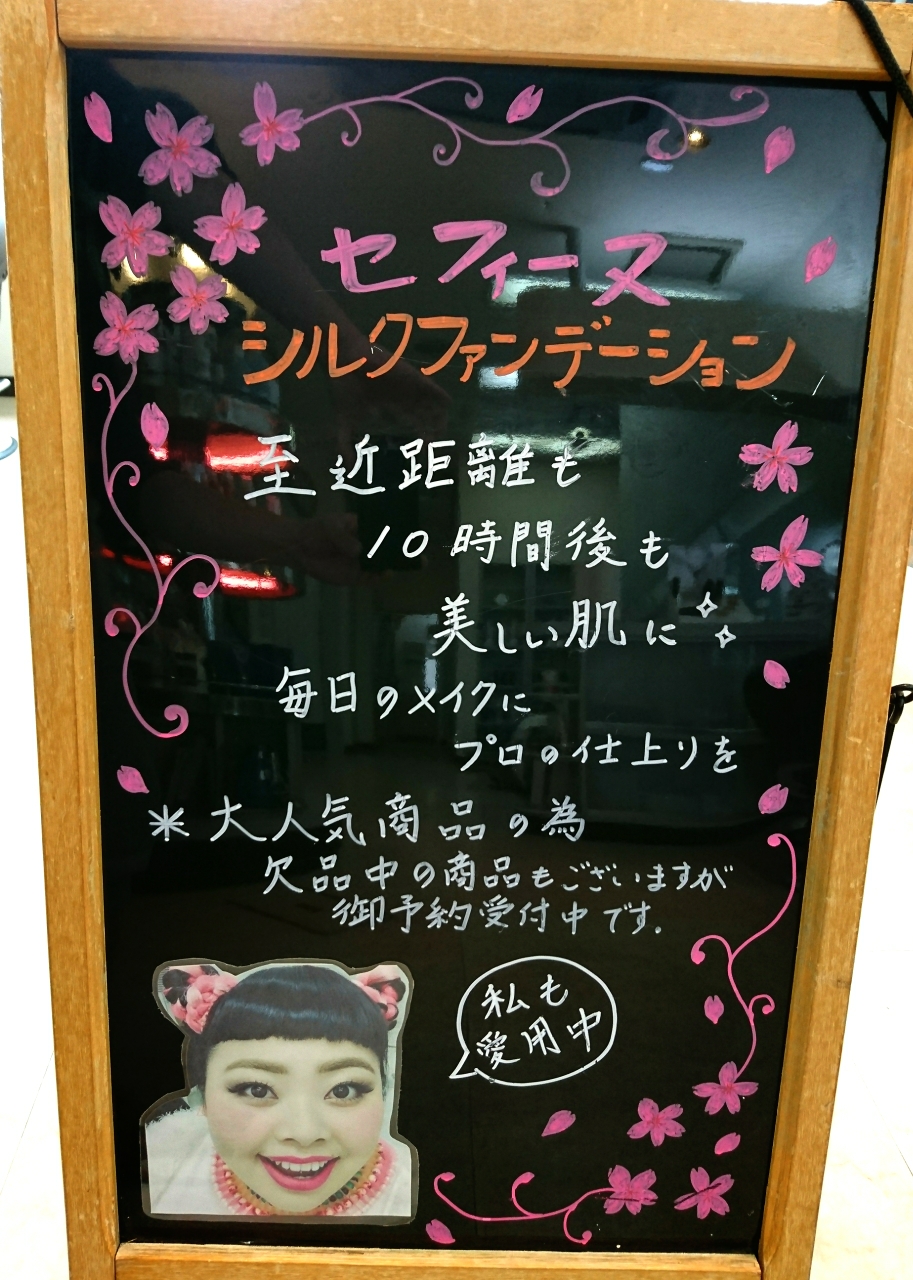 セフィーヌ
シルクファンデーション
至近距離も
10時間後も
美しい肌に
毎日のメイクに
プロの仕上りを
＊大人気商品の為
欠品中の商品もございますが
御予約受付中です.
私も
愛用中